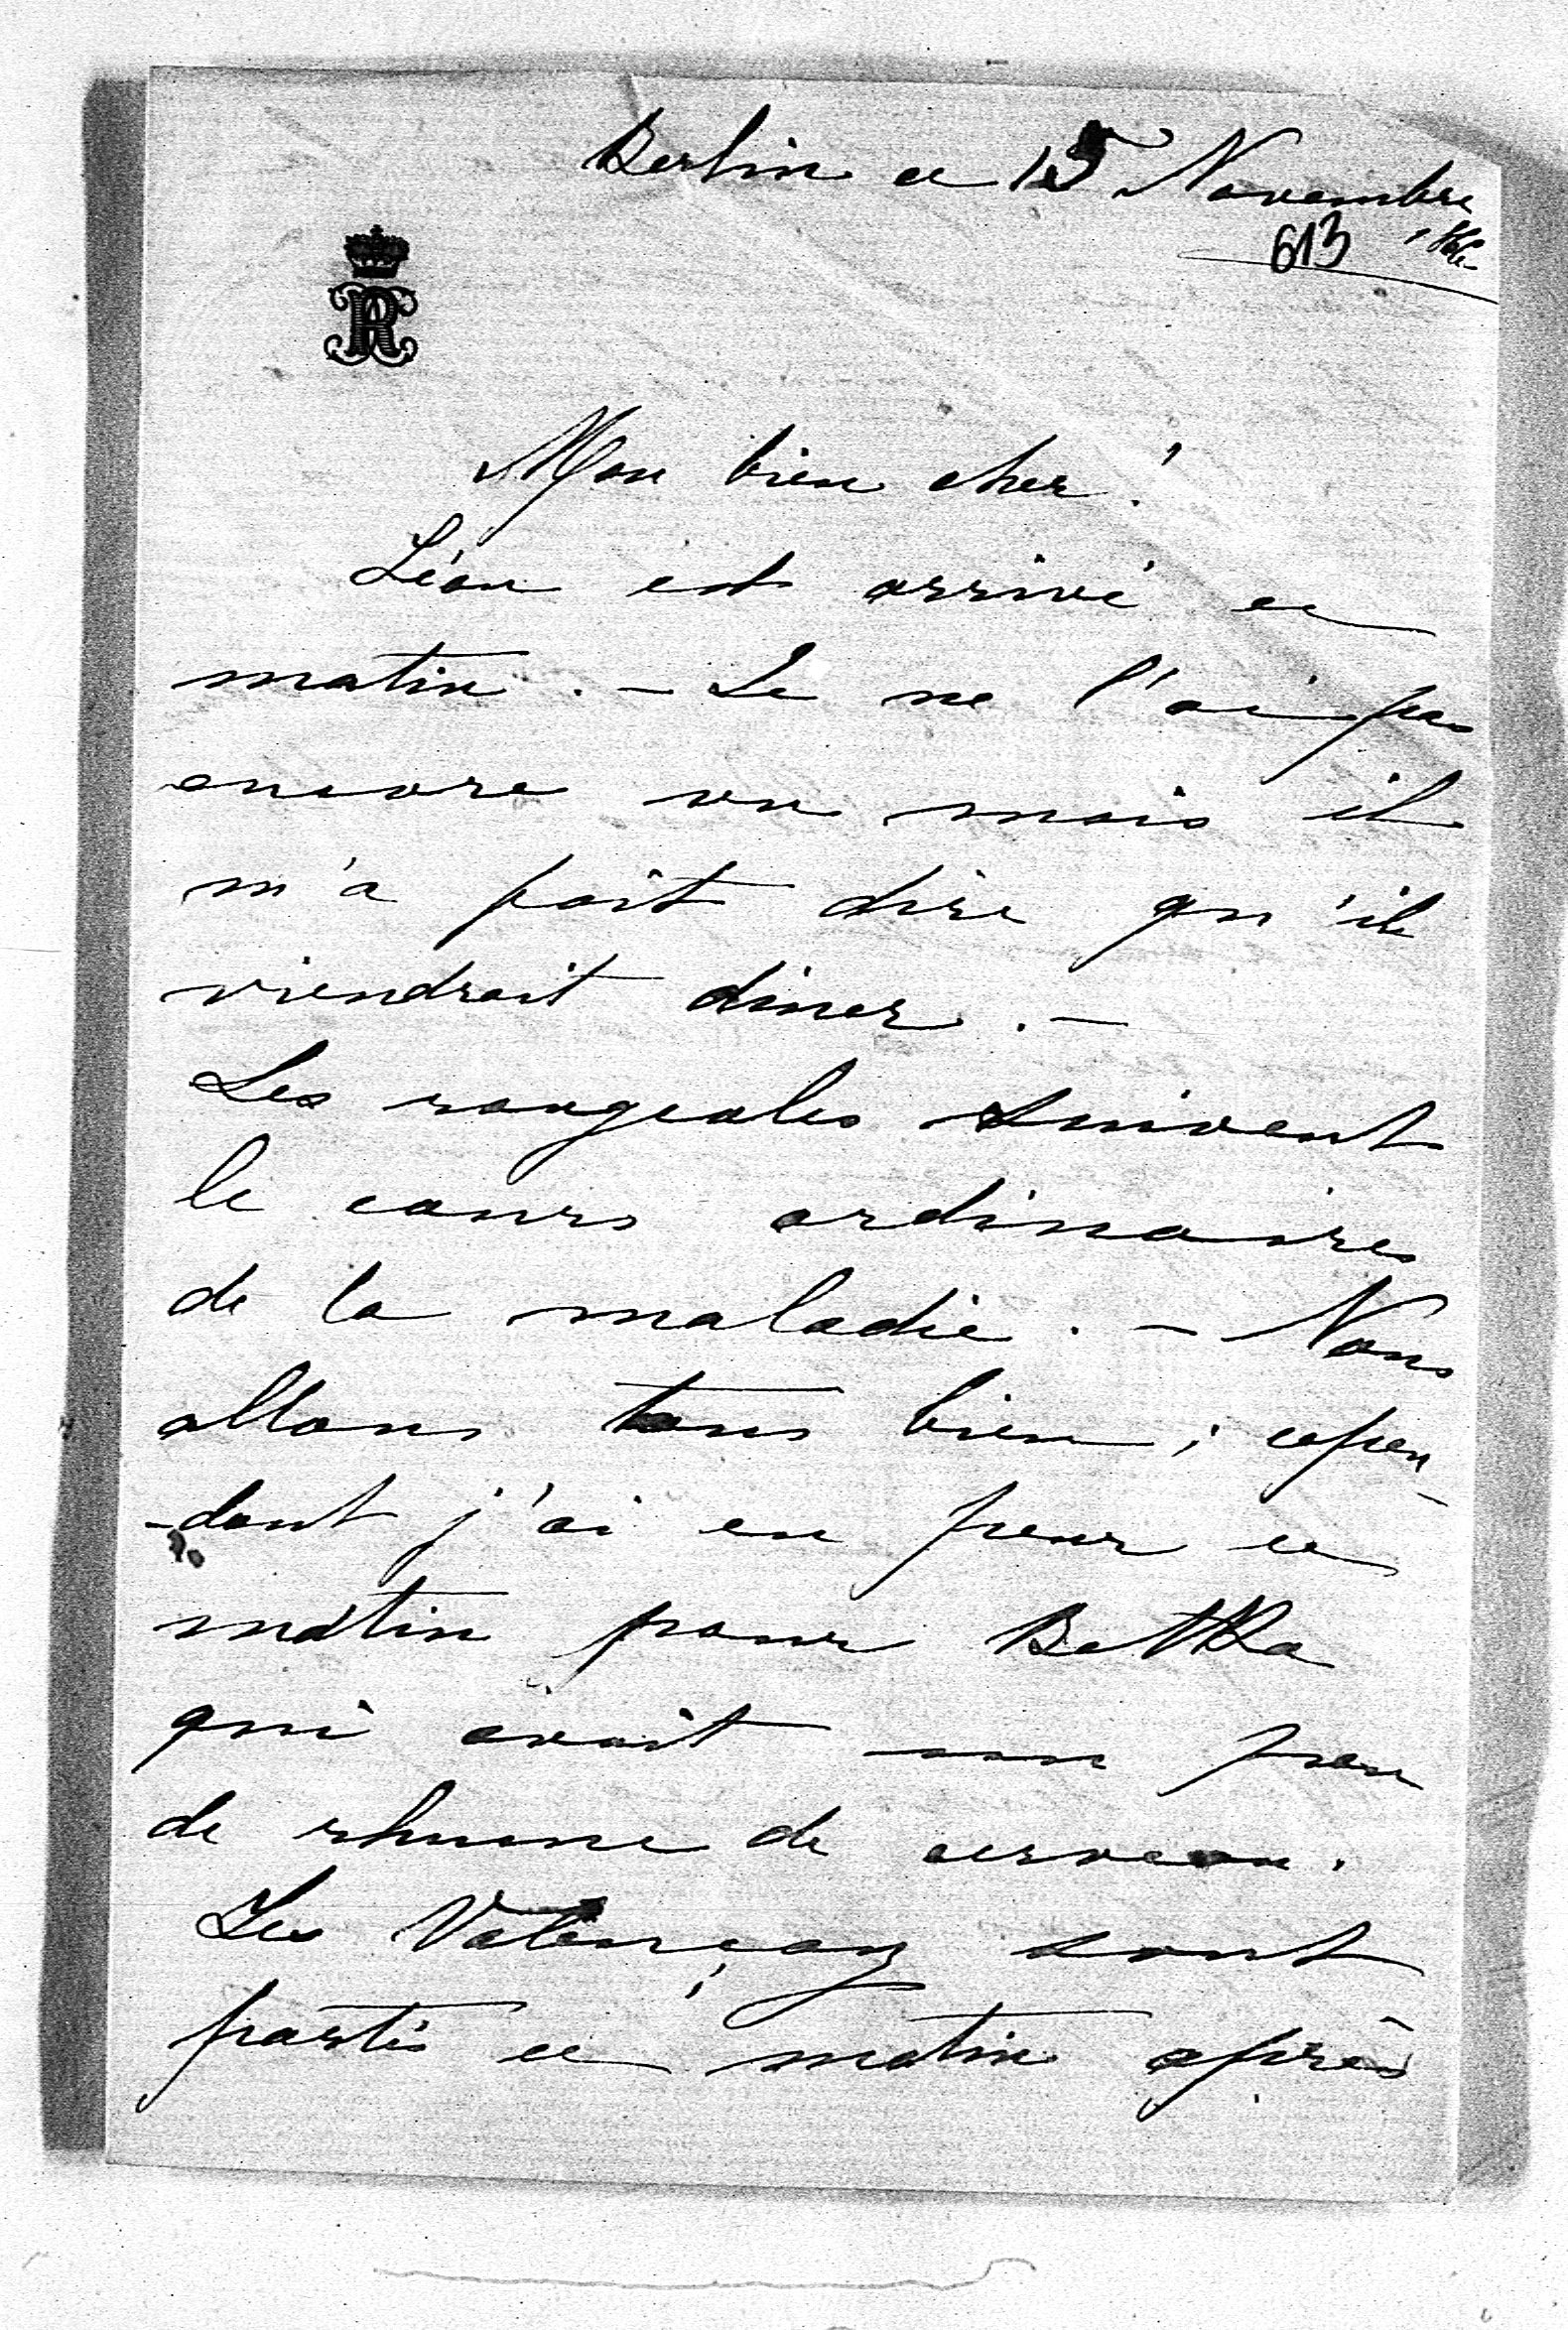 Berlin ce 15 Novembre
613
R
Mon bien cher!
Léon est arrivé ce
matin. – Je ne l'ai pas
encore vu mais il
m'a fait dire qu'il
viendrait diner. –
Les rougeoles suivent
le cours ordinaires
de la maladie. – Nous
allons tous bien; cepen-
-dant j'ai eu peur ce
matin pour Betka
qui avait un peu
de rhume de cerveau.
Les Valençay sont
partis ce matin après